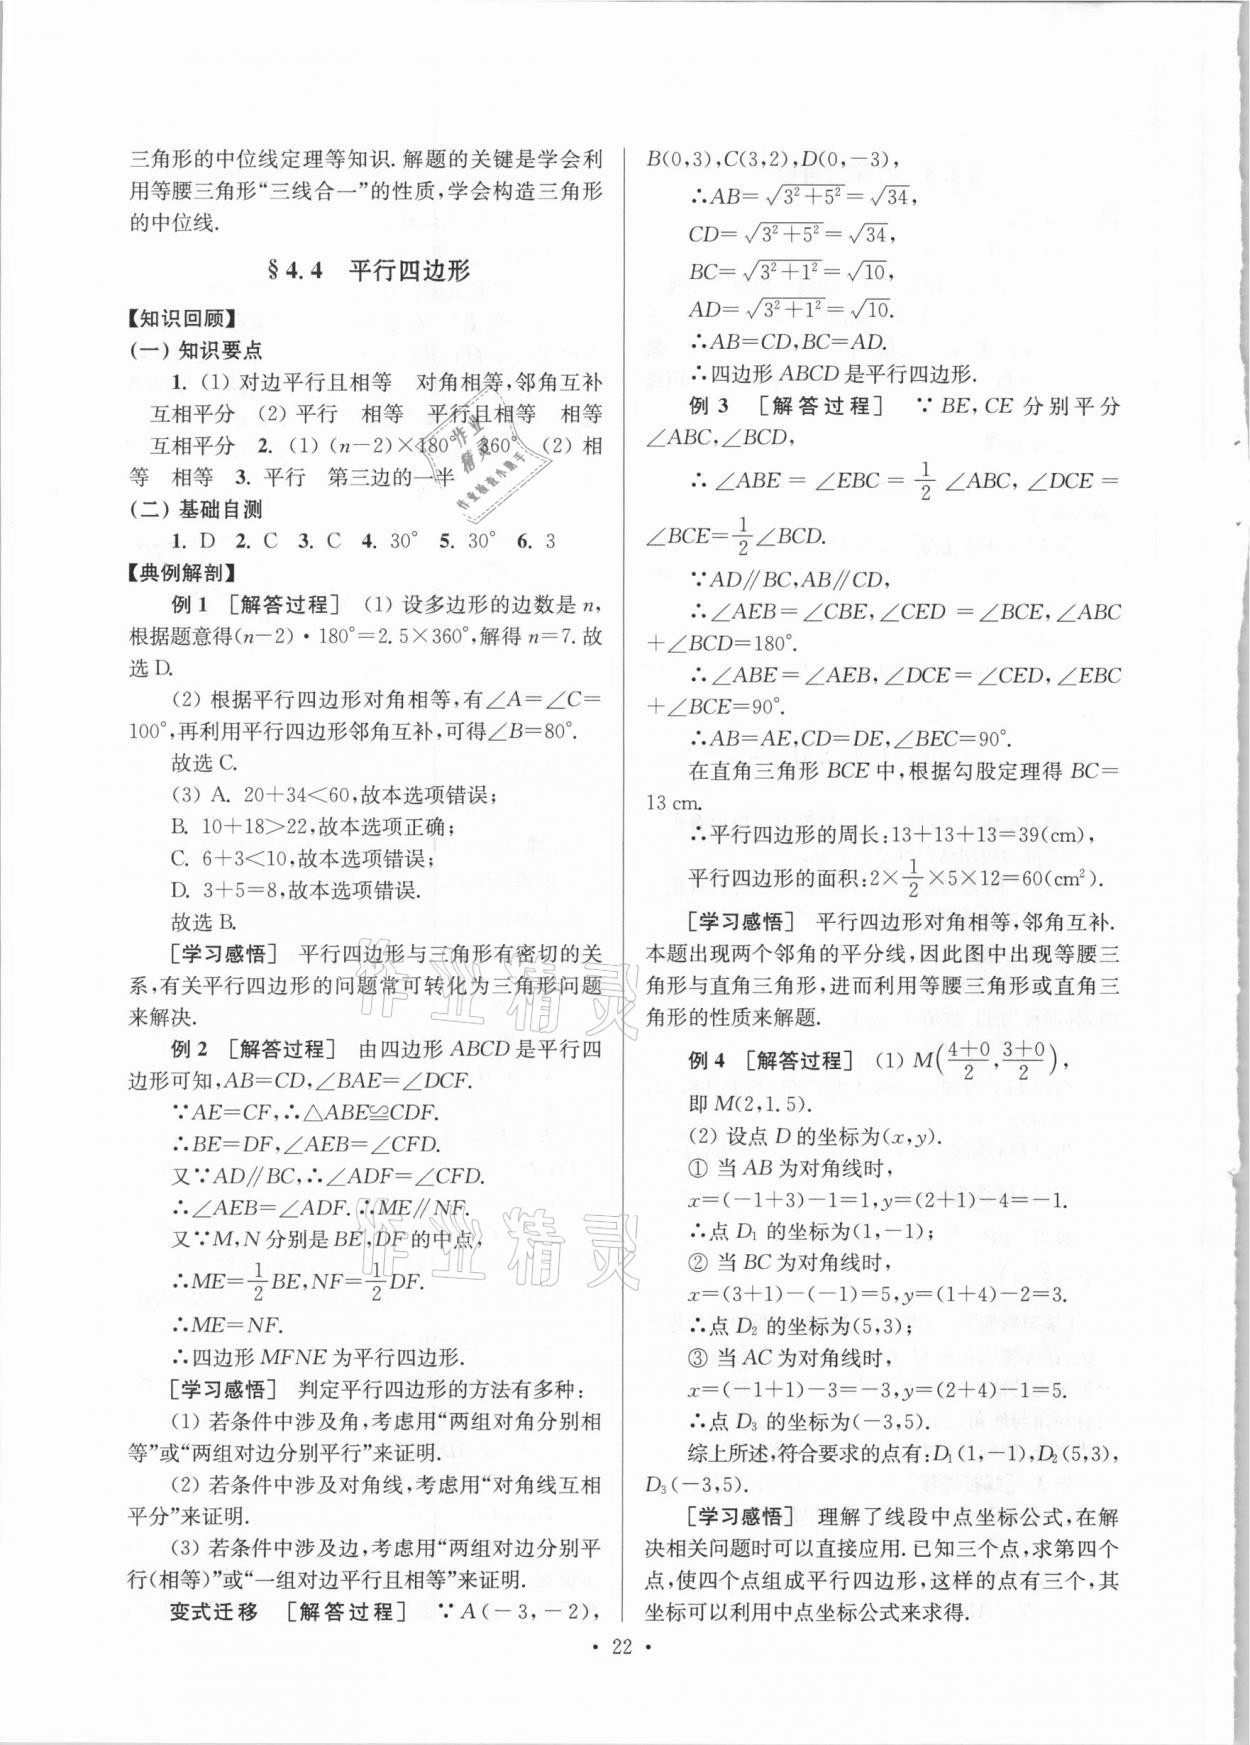 三角形的中位线定理等知识. 解题的关键是学会利
用等腰三角形“三线合一”的性质,学会构造三角形
的中位线.
§4.4 平行四边形
【知识回顾】
(一) 知识要点
1. (1) 对边平行且相等 对角相等,邻角互补
互相平分 (2) 平行 相等 平行且相等 相等
互相平分 2. (1) (n-2)×180° 360° (2) 相
等 相等 3. 平行 第三边的一半
(二) 基础自测
1. D 2. C 3. C 4. 30° 5. 30° 6. 3
【典例解剖】
例 1 [解答过程] (1) 设多边形的边数是 n,
根据题意得(n-2)·180°=2.5×360°,解得 n=7. 故
选 D.
(2) 根据平行四边形对角相等,有∠A=∠C=
100°,再利用平行四边形邻角互补,可得∠B=80°.
故选 C.
(3) A. 20+34<60,故本选项错误;
B. 10+18>22,故本选项正确;
C. 6+3<10,故本选项错误;
D. 3+5=8,故本选项错误.
故选 B.
[学习感悟] 平行四边形与三角形有密切的关
系,有关平行四边形的问题常可转化为三角形问题
来解决.
例 2 [解答过程] 由四边形 ABCD 是平行四
边形可知,AB=CD,∠BAE=∠DCF.
∵AE=CF,∴△ABE≌CDF.
∴BE=DF,∠AEB=∠CFD.
又∵AD∥BC,∴∠ADF=∠CFD.
∴∠AEB=∠ADF.∴ME∥NF.
又∵M,N 分别是 BE,DF 的中点,
∴ME=1/2 BE,NF=1/2 DF.
∴ME=NF.
∴四边形 MFNE 为平行四边形.
[学习感悟] 判定平行四边形的方法有多种:
(1) 若条件中涉及角,考虑用“两组对角分别相
等”或“两组对边分别平行”来证明.
(2) 若条件中涉及对角线,考虑用“对角线互相
平分”来证明.
(3) 若条件中涉及边,考虑用“两组对边分别平
行(相等)”或“一组对边平行且相等”来证明.
变式迁移 [解答过程] ∵A(-3,-2),
B(0,3),C(3,2),D(0,-3),
∴AB=√(3²+5²)=√34,
CD=√(3²+5²)=√34,
BC=√(3²+1²)=√10,
AD=√(3²+1²)=√10.
∴AB=CD,BC=AD.
∴四边形 ABCD 是平行四边形.
例 3 [解答过程] ∵BE,CE 分别平分
∠ABC,∠BCD,
∴∠ABE=∠EBC=1/2 ∠ABC,∠DCE=
∠BCE=1/2 ∠BCD.
∵AD∥BC,AB∥CD,
∴∠AEB=∠CBE,∠CED=∠BCE,∠ABC
+∠BCD=180°.
∴∠ABE=∠AEB,∠DCE=∠CED,∠EBC
+∠BCE=90°.
∴AB=AE,CD=DE,∠BEC=90°.
在直角三角形 BCE 中,根据勾股定理得 BC=
13 cm.
∴平行四边形的周长:13+13+13=39(cm),
平行四边形的面积:2×1/2×5×12=60(cm²).
[学习感悟] 平行四边形对角相等,邻角互补.
本题出现两个邻角的平分线,因此图中出现等腰三
角形与直角三角形,进而利用等腰三角形或直角三
角形的性质来解题.
例 4 [解答过程] (1) M((4+0)/2,(3+0)/2),
即 M(2,1.5).
(2) 设点 D 的坐标为(x,y).
① 当 AB 为对角线时,
x=(-1+3)-1=1,y=(2+1)-4=-1.
∴点 D₁ 的坐标为(1,-1);
② 当 BC 为对角线时,
x=(3+1)-(-1)=5,y=(1+4)-2=3.
∴点 D₂ 的坐标为(5,3);
③ 当 AC 为对角线时,
x=(-1+1)-3=-3,y=(2+4)-1=5.
∴点 D₃ 的坐标为(-3,5).
综上所述,符合要求的点有:D₁(1,-1),D₂(5,3),
D₃(-3,5).
[学习感悟] 理解了线段中点坐标公式,在解
决相关问题时可以直接应用. 已知三个点,求第四个
点,使四个点组成平行四边形,这样的点有三个,其
坐标可以利用中点坐标公式来求得.
· 22 ·
作业精灵
作业精灵
作业
精灵
作业检查小助手